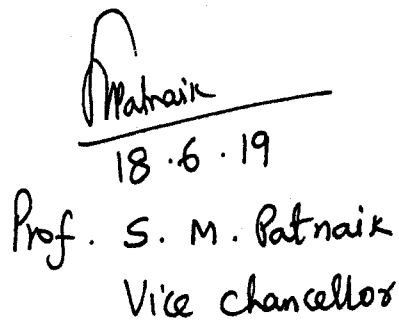 SMPatnaik
18.6.19
Prof. S. M. Patnaik
Vice chancellor